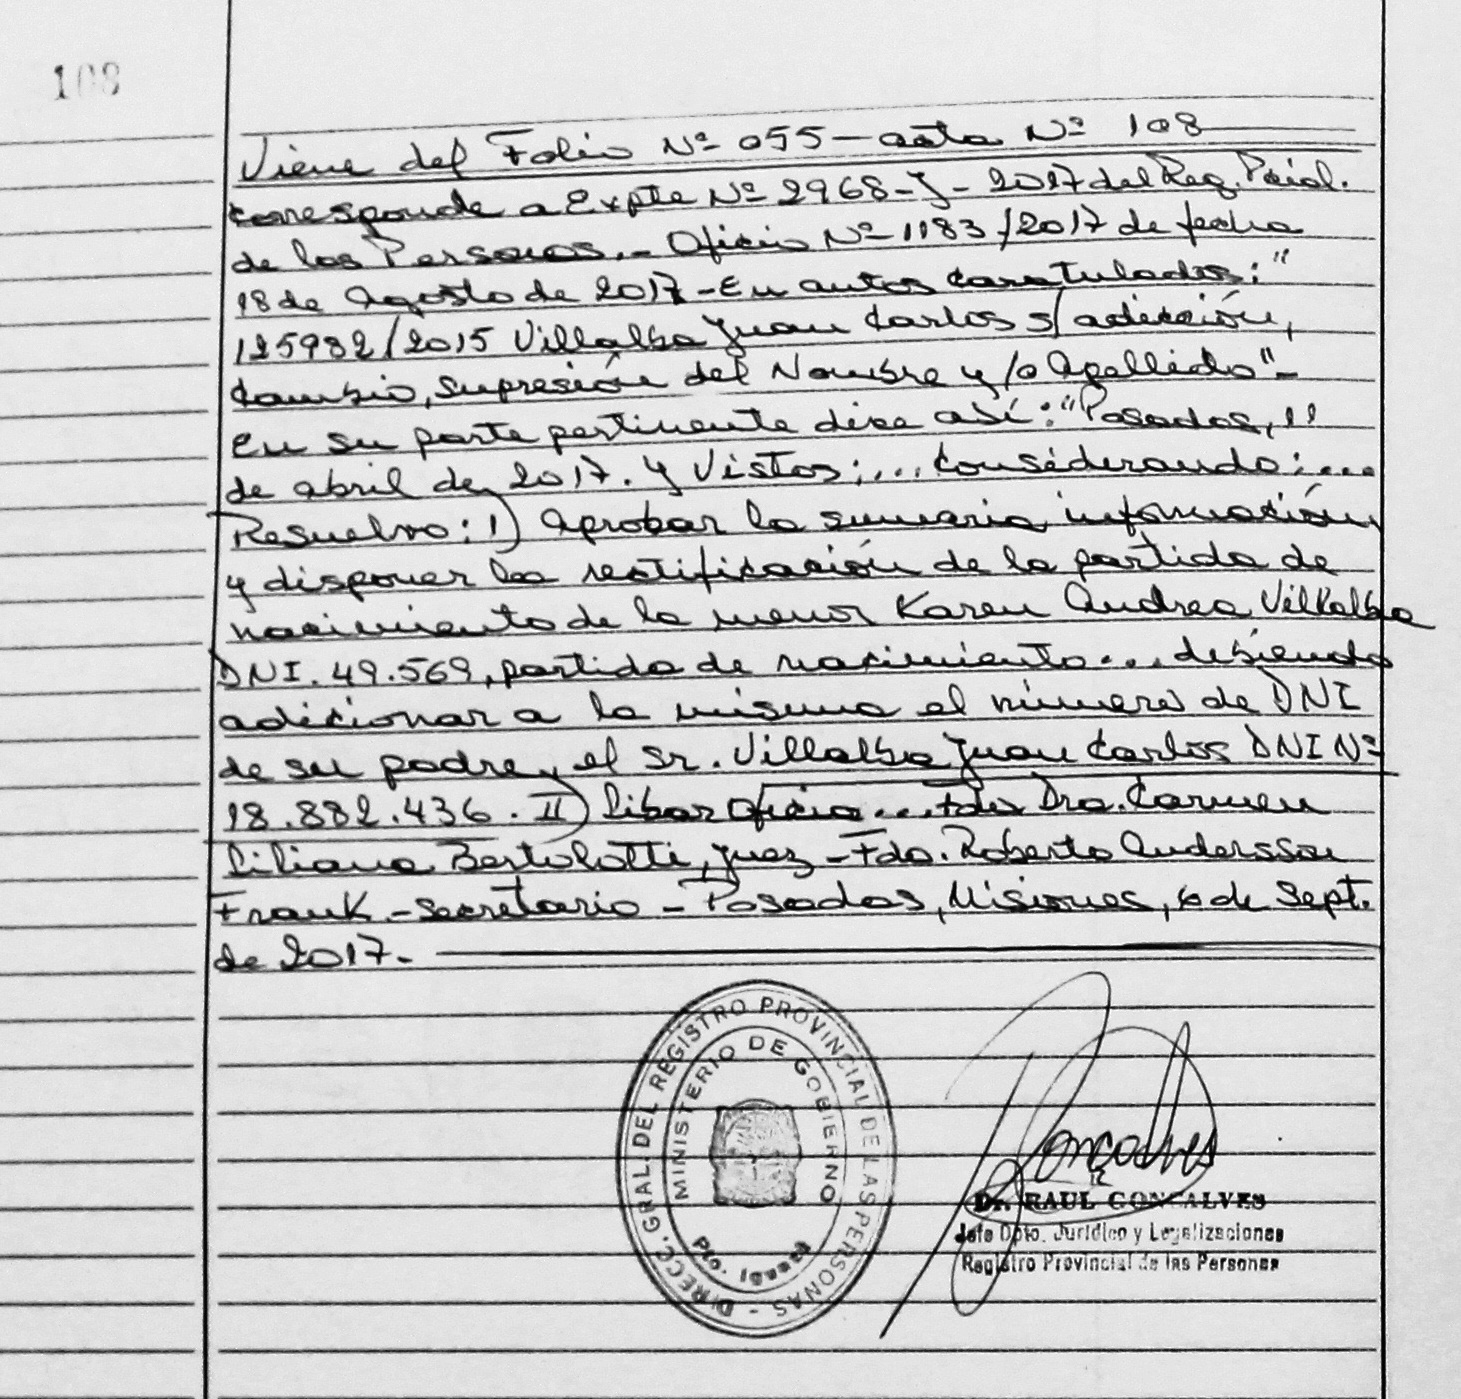 108
Viene del Folio Nº 055 - acta Nº 108
corresponde a Expte Nº 2968-J-2017 del Reg. Pcial.
de las Personas.- Oficio Nº 1183/2017 de fecha
18 de Agosto de 2017 - En autos caratulados: "
125982/2015 Villalba Juan Carlos s/ adición,
cambio, supresión del Nombre y/o Apellido"-
En su parte pertinente dice así: "Posadas, 11
de abril de 2017. Y Vistos:... Considerando:...
Resuelvo: 1) Aprobar la sumaria información
y disponer la rectificación de la partida de
nacimiento de la menor Karen Andrea Villalba
DNI. 49.569, partida de nacimiento... debiendo
adicionar a la misma el número de DNI
de su padre, el Sr. Villalba Juan Carlos DNI Nº
18.882.436. II) Librar Oficio... Fdo Dra. Carmen
Liliana Bertolotti, Juez - Fdo. Roberto Andersson
Frank - Secretario - Posadas, Misiones, 6 de Sept.
de 2017.-
DIRECC. GRAL. DEL REGISTRO PROVINCIAL DE LAS PERSONAS -
MINISTERIO DE GOBIERNO
Pto. Iguazú
Goncalves
Dr. RAUL GONCALVES
Jefe Dpto. Jurídico y Legalizaciones
Registro Provincial de las Personas